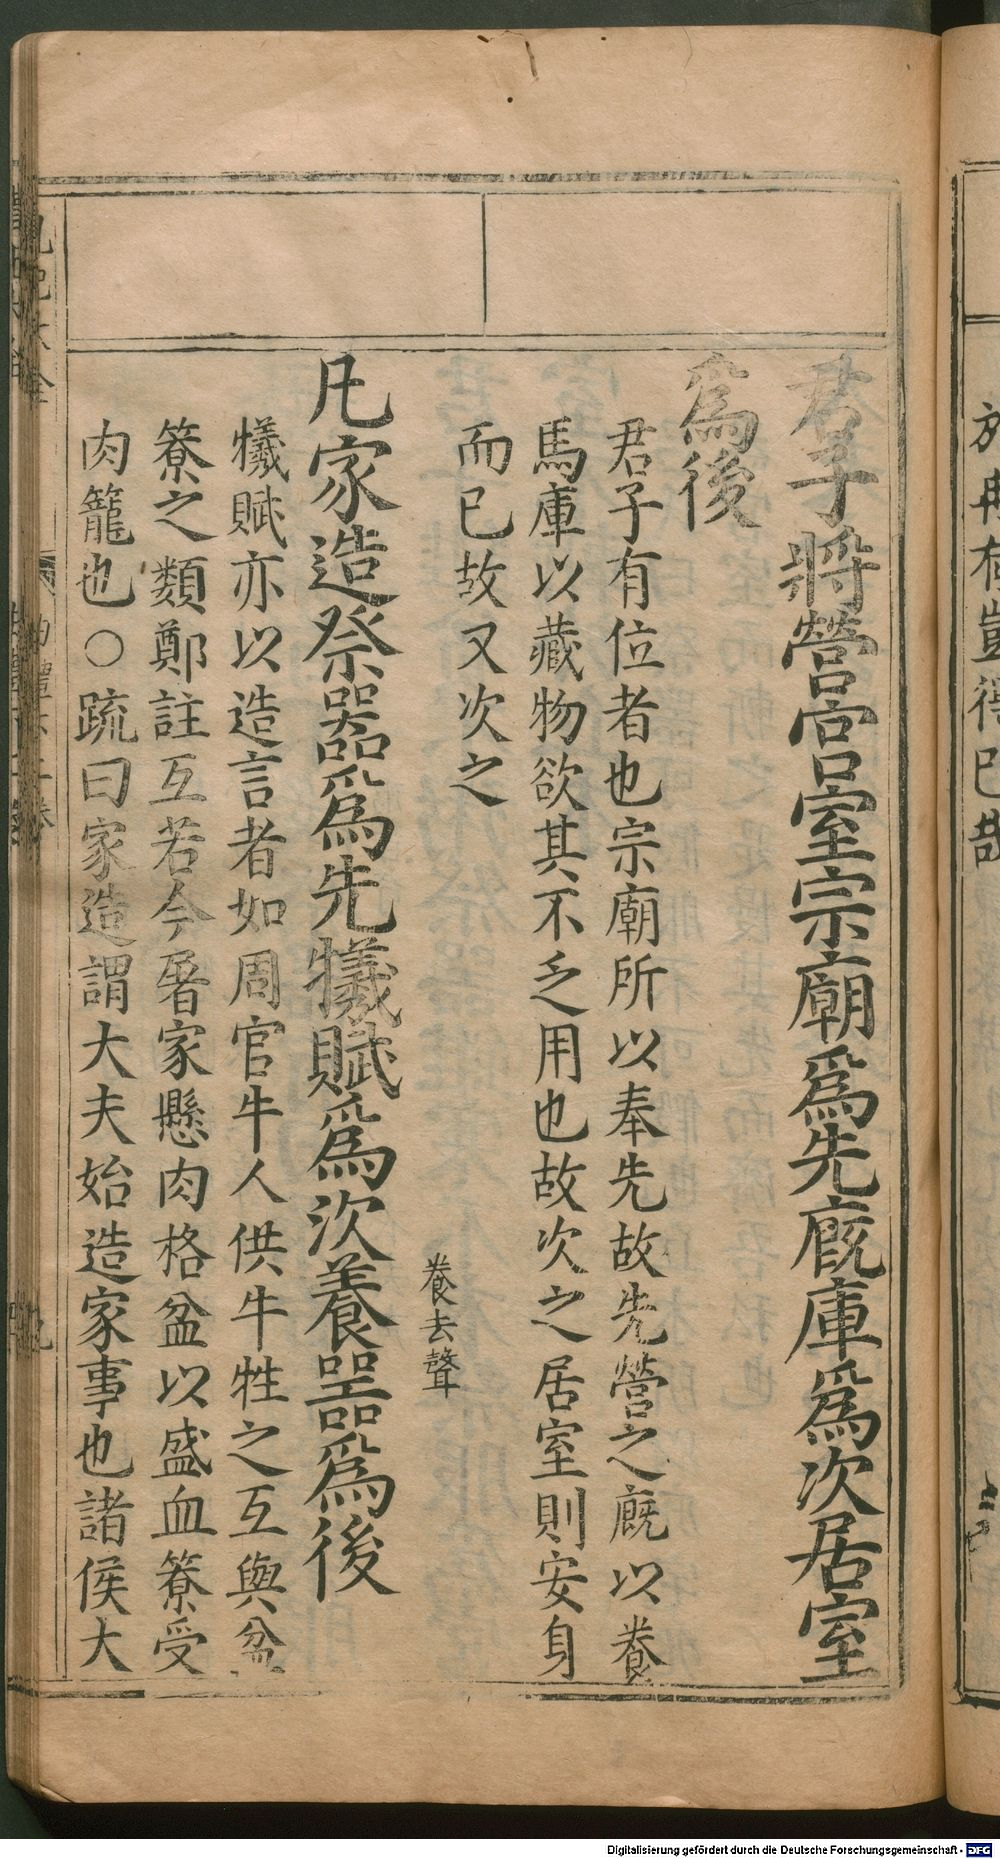 君子將營宮室宗廟爲先廐庫爲次居室
爲後
君子有位者也宗廟所以奉先故先營之廐以養
馬庫以藏物欲其不乏用也故次之居室則安身
而已故又次之
養去聲
凡家造祭器爲先犧賦爲次養器爲後
犧賦亦以造言者如周官牛人供牛牲之互與盆
簝之類鄭註互若今屠家懸肉格盆以盛血簝受
肉籠也○疏曰家造謂大夫始造家事也諸侯大
Digitalisierung gefördert durch die Deutsche Forschungsgemeinschaft - DFG